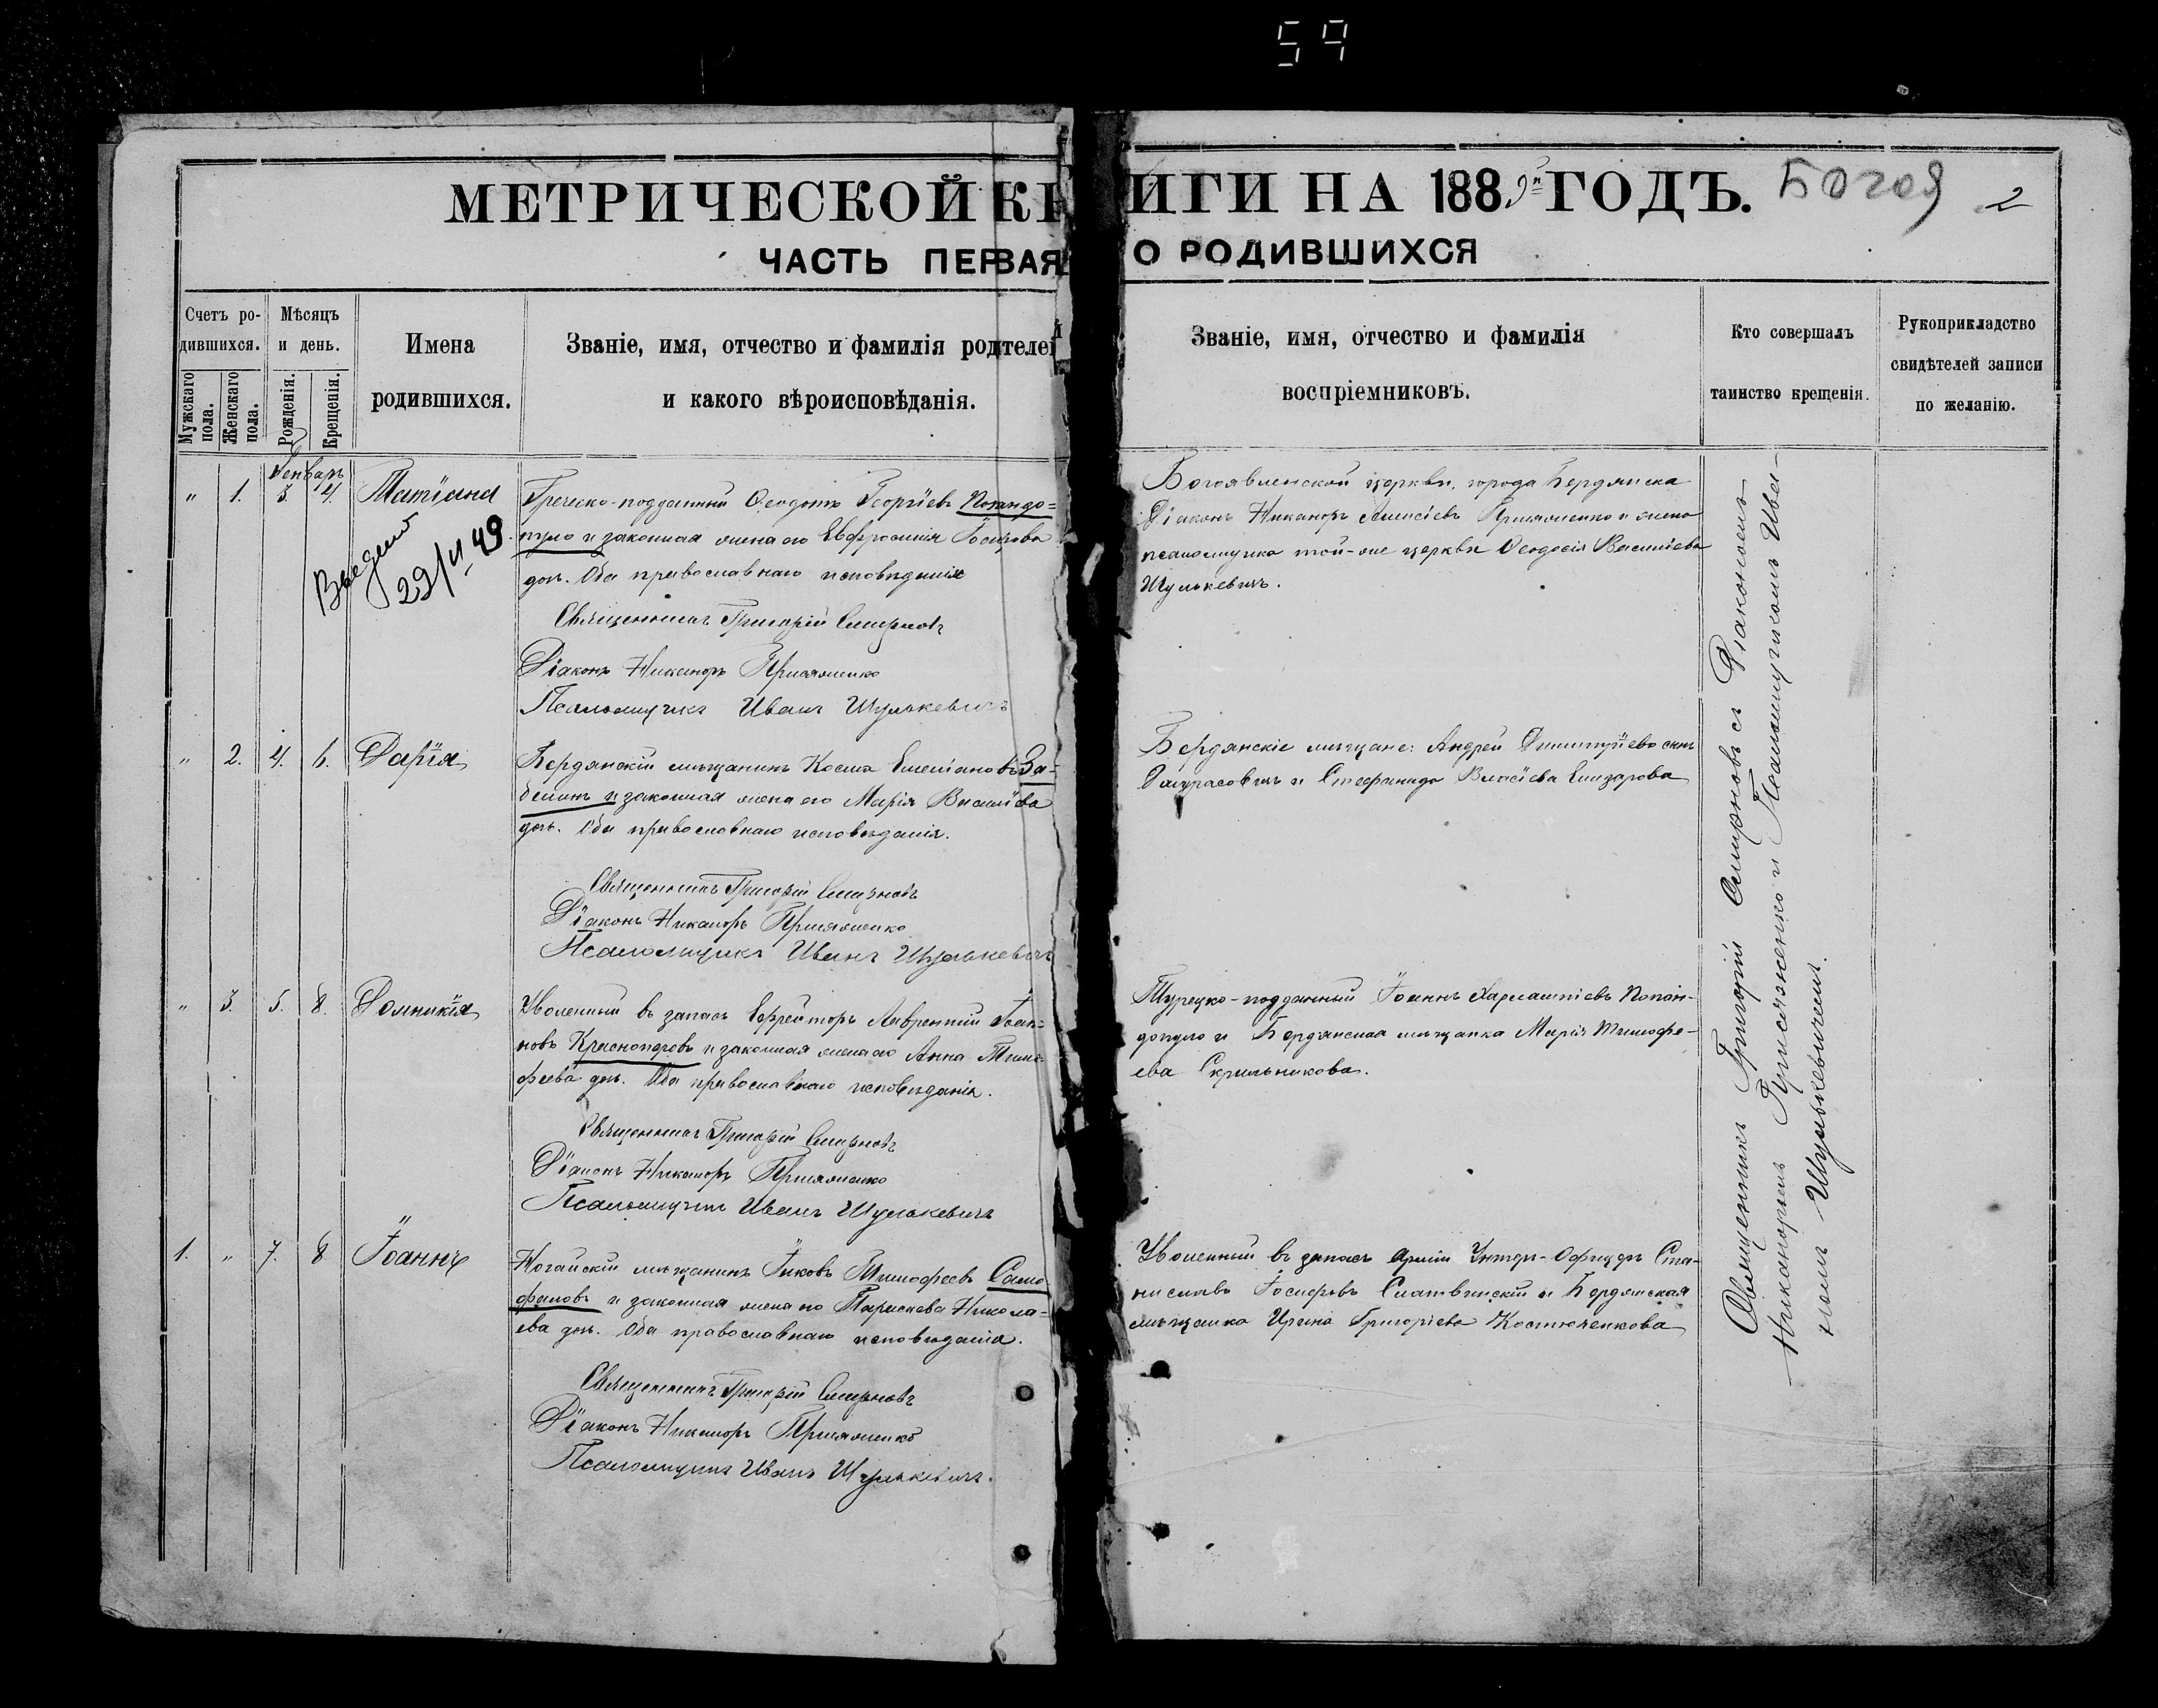 59
МЕТРИЧЕСКОЙ КНИГИ НА 1889й ГОДЪ. Богоя 2
ЧАСТЬ ПЕРВАЯ О РОДИВШИХСЯ
Счетъ ро-
дившихся.
Мужскаго
пола.
Женскаго
пола.
Мѣсяцъ
и день.
Рожденія.
Крещенія.
Имена
родившихся.
Званіе, имя, отчество и фамилія родителей
и какого вѣроисповѣданія.
Званіе, имя, отчество и фамилія
воспріемниковъ.
Кто совершалъ
таинство крещенія.
Рукоприкладство
свидѣтелей записи
по желанію.
Генварь
" 1. 3. 4. Татіана
29/II 49
Греческо-подданный Ѳеодотъ Георгіевъ Попандо=
пуло и законная жена его Евфросинія
доч. Оба православнаго исповѣданія
Священникъ Григорій Смирновъ
Діаконъ Никаноръ Присяженко
Псаломщикъ Иванъ Шулькевичъ
Богоявленской церкви, города Бердянска
Діаконъ Никаноръ Алексіевъ Присяженко и жена
псаломщика той-же церкви Ѳеодосія Васильева
Шулькевичъ.
" 2. 4. 6. Дарія
Бердянскій мѣщанинъ Косма Емеліановъ За-
белинъ и законная жена его Марія Васильева
доч. Оба православнаго исповѣданія.
Священникъ Григорій Смирновъ
Діаконъ Никаноръ Присяженко
Псаломщикъ Иванъ Шулькевичъ
Бердянскіе мѣщане: Андрей Димитріевъ сынъ
и Стефанида Власіева Елизарова
" 3. 5. 8. Домникія
Уволенный въ запасъ Ефрейторъ Лаврентій Іоан-
новъ Краснопёровъ и законная жена его Анна Тимо-
феева доч. Оба православнаго исповѣданія.
Священникъ Григорій Смирновъ
Діаконъ Никаноръ Присяженко
Псаломщикъ Иванъ Шулькевичъ
Турецко-подданный Іоаннъ Харлампіевъ Попан-
допуло и Бердянская мѣщанка Марія Тимофе-
ева Скрыльникова.
1. " 7. 8 Іоаннъ
Ногайскій мѣщанинъ Іаковъ Тимофеевъ Само-
фаловъ и законная жена его Параскева Никола-
ева доч. Оба православнаго исповѣданія.
Священникъ Григорій Смирновъ
Діаконъ Никаноръ Присяженко
Псаломщикъ Иванъ Шулькевичъ.
Уволенный въ запасъ Арміи Унтеръ-Офицеръ Ста-
ниславъ Іосифовъ Слатвинскій и Бердянская
мѣщанка Ирина Григоріева Костюченкова
Священникъ Григорій Смирновъ съ Діакономъ
Никаноромъ Присяженко и Псаломщикомъ Ива-
номъ Шулькевичемъ.